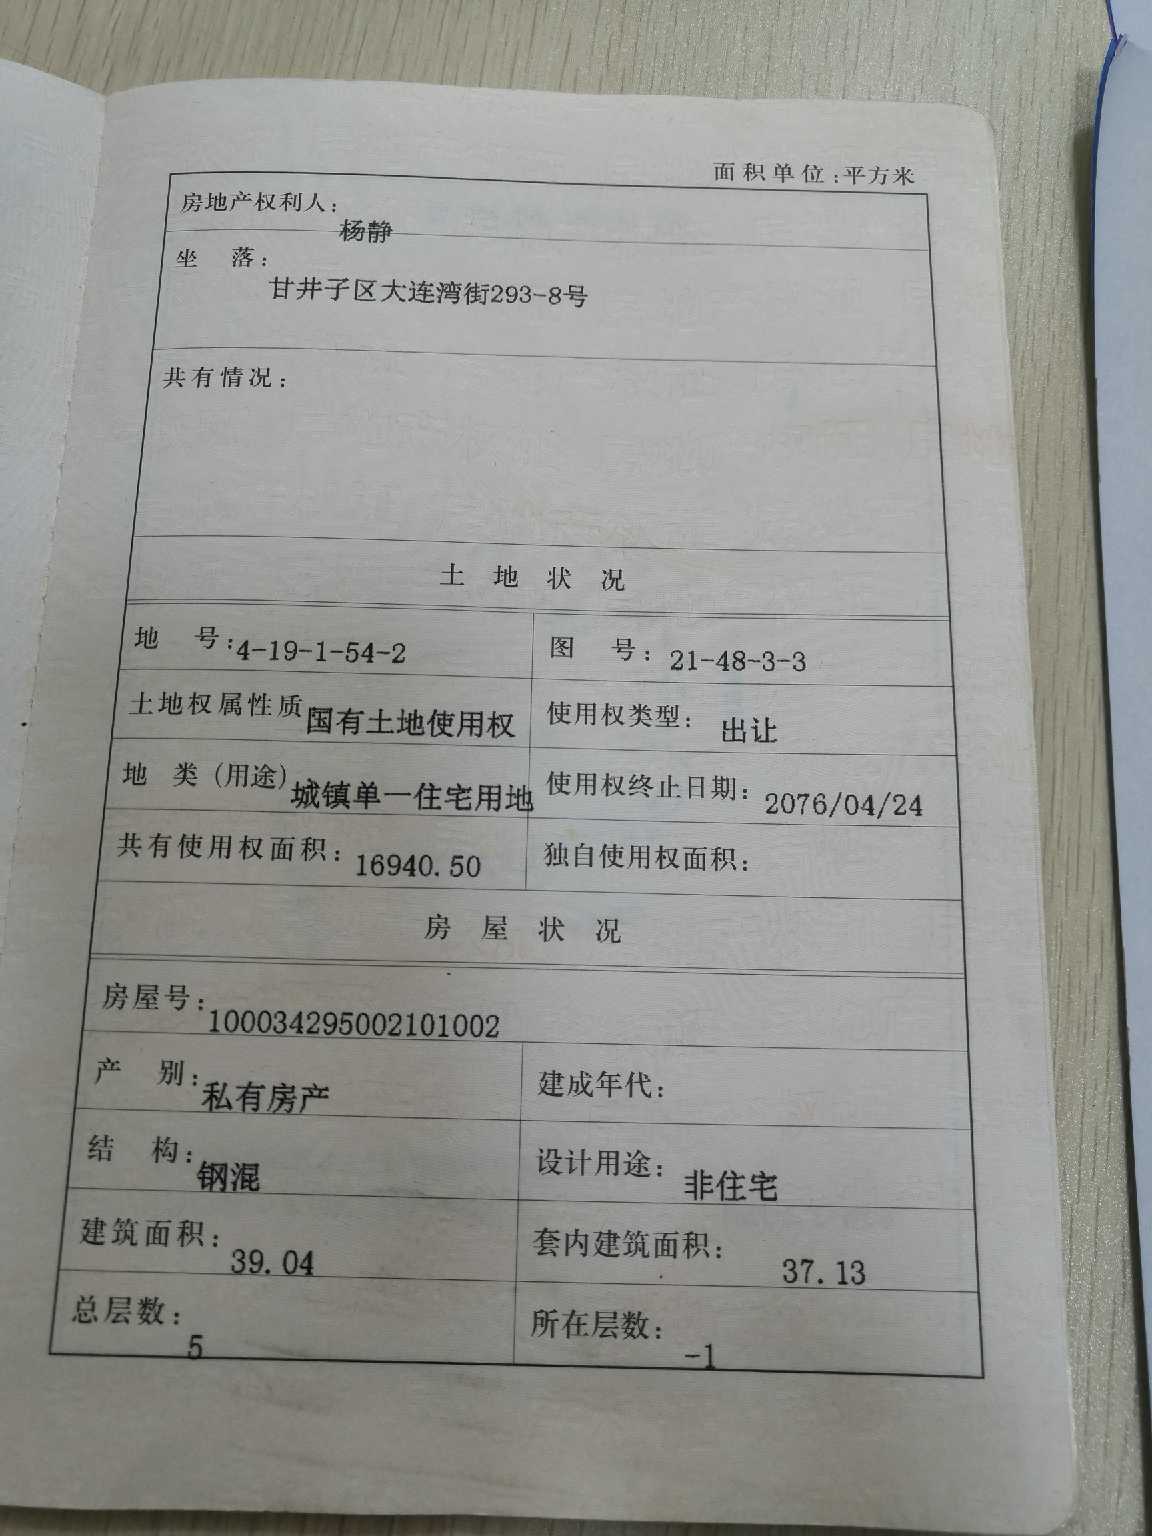 面积单位:平方米
房地产权利人:
杨静
坐 落:
甘井子区大连湾街293-8号
共有情况:
土 地 状 况
地 号:4-19-1-54-2 图 号: 21-48-3-3
土地权属性质 国有土地使用权 使用权类型: 出让
地 类(用途) 城镇单一住宅用地 使用权终止日期: 2076/04/24
共有使用权面积: 16940.50 独自使用权面积:
房 屋 状 况
房屋号:100034295002101002
产 别:私有房产 建成年代:
结 构:钢混 设计用途: 非住宅
建筑面积: 39.04 套内建筑面积: 37.13
总层数: 5 所在层数: -1